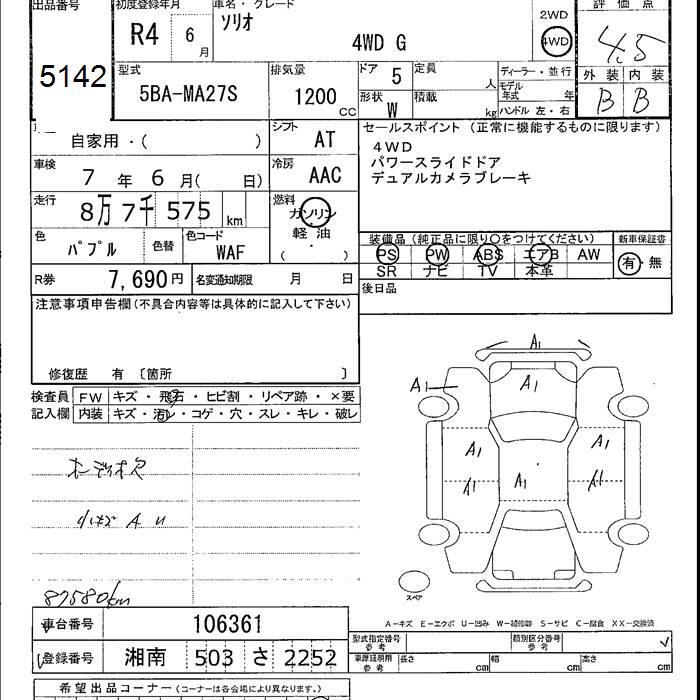 出品番号
5142
初度登録年月
R4 6月
車名・グレード
ソリオ
4WD G
2WD
4WD
評価点
4.5
外装 内装
B B
型式
5BA-MA27S
排気量
1200 cc
ドア 5
定員 人
形状 W
積載 kg
ディーラー・並行
モデル年式 年
ハンドル 左・右
自家用・( )
シフト
AT
車検
7年 6月( 日)
冷房
AAC
走行
8万7千575km
燃料
ガソリン
軽油
( ・ )
色
パプル
色替
色コード
WAF
R券
7,690円
名変通知期限 月 日
セールスポイント (正常に機能するものに限ります)
4WD
パワースライドドア
デュアルカメラブレーキ
装備品(純正品に限り○をつけてください)
PS PW ABS エアB AW
SR ナビ TV 本革
新車保証書
有・無
後日品
注意事項申告欄(不具合内容等は具体的に記入して下さい)
修復歴 有 〔箇所 〕
検査員 FW キズ・飛石・ヒビ割・リペア跡・×要
記入欄 内装 キズ・汚レ・コゲ・穴・スレ・キレ・破レ
オーディオ欠
小キズ A U
87580km
A1
A1 A1
A1 A1
A1 A1 A1
スペア
A-キズ E-エクボ U-凹み W-補修跡 S-サビ C-腐食 XX-交換済
車台番号 106361
登録番号 湘南 503 さ 2252
型式指定番号 参考
類別区分番号 参考
車庫証明用 参考
長さ cm 幅 cm 高さ cm
希望出品コーナー(コーナーは各会場により異なります。)